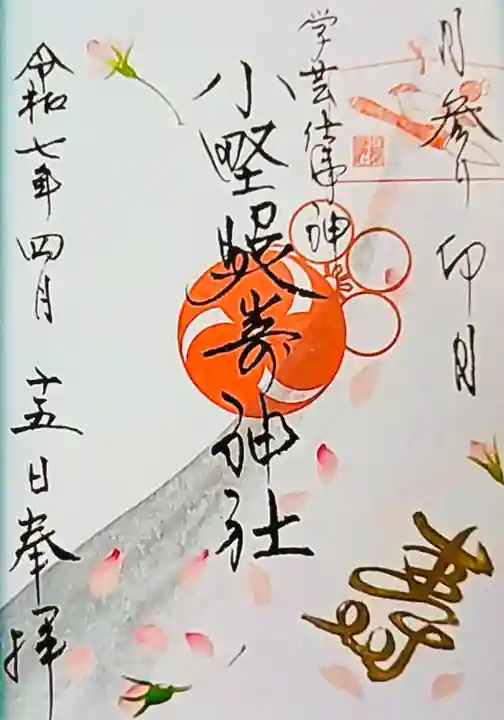 月参り 卯月
学芸仕事神
小野照嵜神社
令和七年 四月 十五日 奉拝